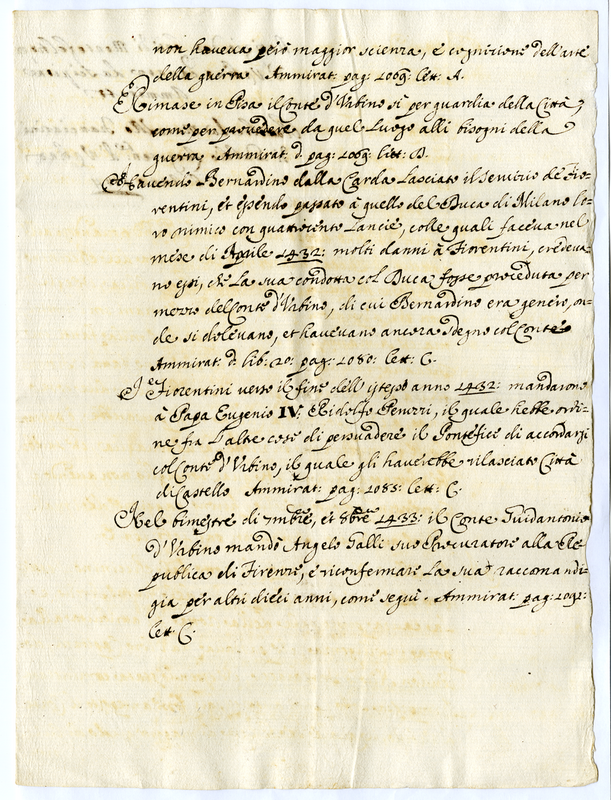 non haveva però maggior scienza, e cognizione dell'arte
della guerra Ammirat: pag: 1069: lett: A.
Rimase in Pisa il Conte d'Urbino sì per guardia della Città,
come per provedere da quel Luogo alli bisogni della
guerra. Ammirat: d. pag: 1069: lett: D.
Havendo Bernardino dalla Carda Lasciato il servizio de Fio-
rentini, et essendo passato à quello del Duca di Milano lo-
ro nimico con quattrocento Lancie, colle quali faceva nel
mese di Aprile 1432: molti danni à Fiorentini, credeva-
no essi, che La sua condotta col Duca fosse proceduta per
mezzo del Conte d'Urbino, di cui Bernardino era genero, on-
de si dolevano, et havevano ancora sdegno col Conte
Ammirat: d. lib: 20: pag: 1080: lett: C.
I Fiorentini verso il fine dell'istesso anno 1432: mandarono
à Papa Eugenio IV: Ridolfo Peruzzi, il quale hebbe ordi-
ne frà L'altre cose di persuadere il Pontefice di accordarsi
col Conte d'Urbino, il quale gli haverebbe rilasciato Città
di Castello Ammirat: pag: 1083: lett: C.
Nel bimestre di 7mbre, et 8bre 1433: il Conte Guidantonio
d'Urbino mandò Angelo Galli suo Procuratore alla Re-
publica di Firenze, e riconfermare La sua raccomandi-
gia per altri dieci anni, come seguì. Ammirat: pag: 1092:
lett: C.